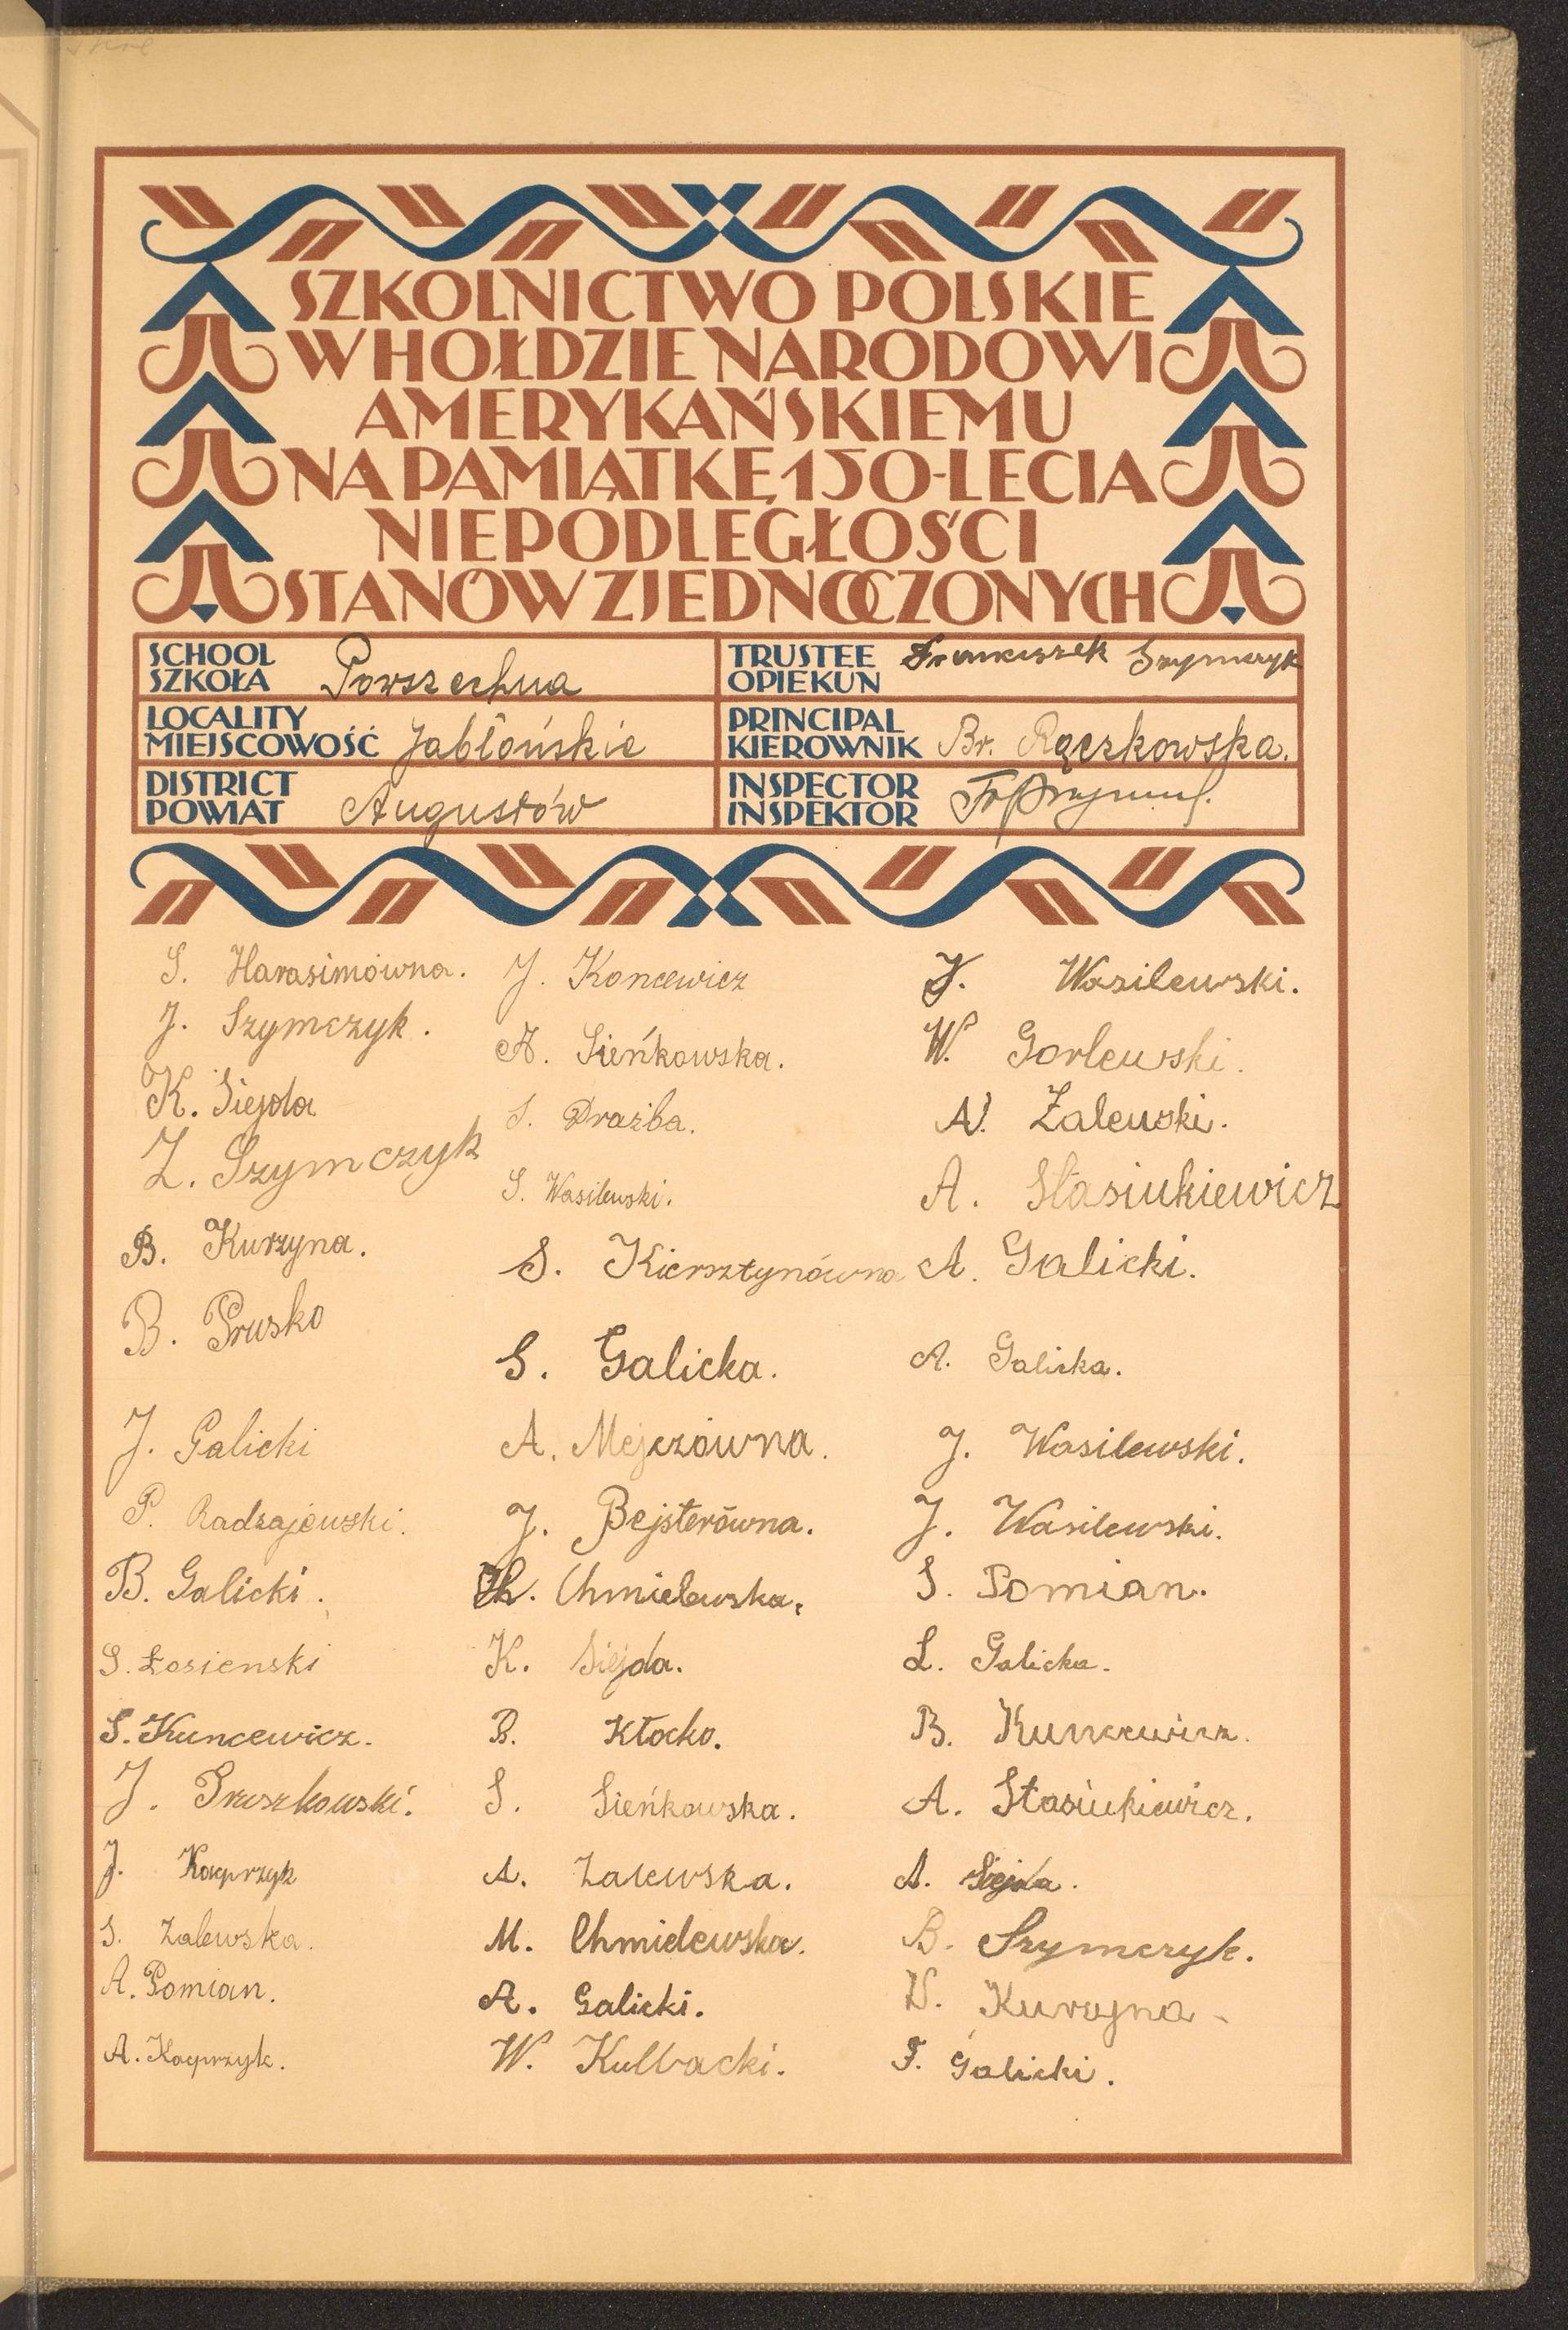 SZKOLNICTWO POLSKIE
W HOŁDZIE NARODOWI
AMERYKAŃSKIEMU
NA PAMIĄTKĘ 150-LECIA
NIEPODLEGŁOŚCI
STANÓW ZJEDNOCZONYCH
SCHOOL
SZKOŁA Powszechna
TRUSTEE
OPIEKUN Franciszek Szymczyk
LOCALITY
MIEJSCOWOŚĆ Jabłońskie
PRINCIPAL
KIEROWNIK Br. Rączkowska.
DISTRICT
POWIAT Augustów
INSPECTOR
INSPEKTOR
S. Harasimówna.
J. Szymczyk.
K. Siejda
Z. Szymczyk
B. Kurzyna.
B. Prusko
J. Galicki
P. Radzajewski.
B. Galicki.
S. Łosienski
S. Kuncewicz.
J. Pruszkowski.
J. Kacprzyk
S. Zalewska.
A. Pomian.
A. Kacprzyk.
J. Koncewicz
A. Sieńkowska.
S. Drażba.
S. Wasilewski.
S. Kiersztynówna
S. Galicka.
A. Mejczówna.
J. Bejsterówna.
Ch. Chmielewska.
K. Siejda.
B. Kłocko.
S. Sieńkowska.
A. Zalewska.
M. Chmielewska.
A. Galicki.
W. Kulbacki.
J. Wasilewski.
W. Gorlewski.
A. Zalewski.
A. Stasiukiewicz
A. Galicki.
A. Galicka.
J. Wasilewski.
J. Wasilewski.
S. Pomian.
L. Galicka.
B. Kuncewicz.
A. Stasiukiewicz.
A. Siejda.
B. Szymczyk.
W. Kurzyna.
F. Galicki.